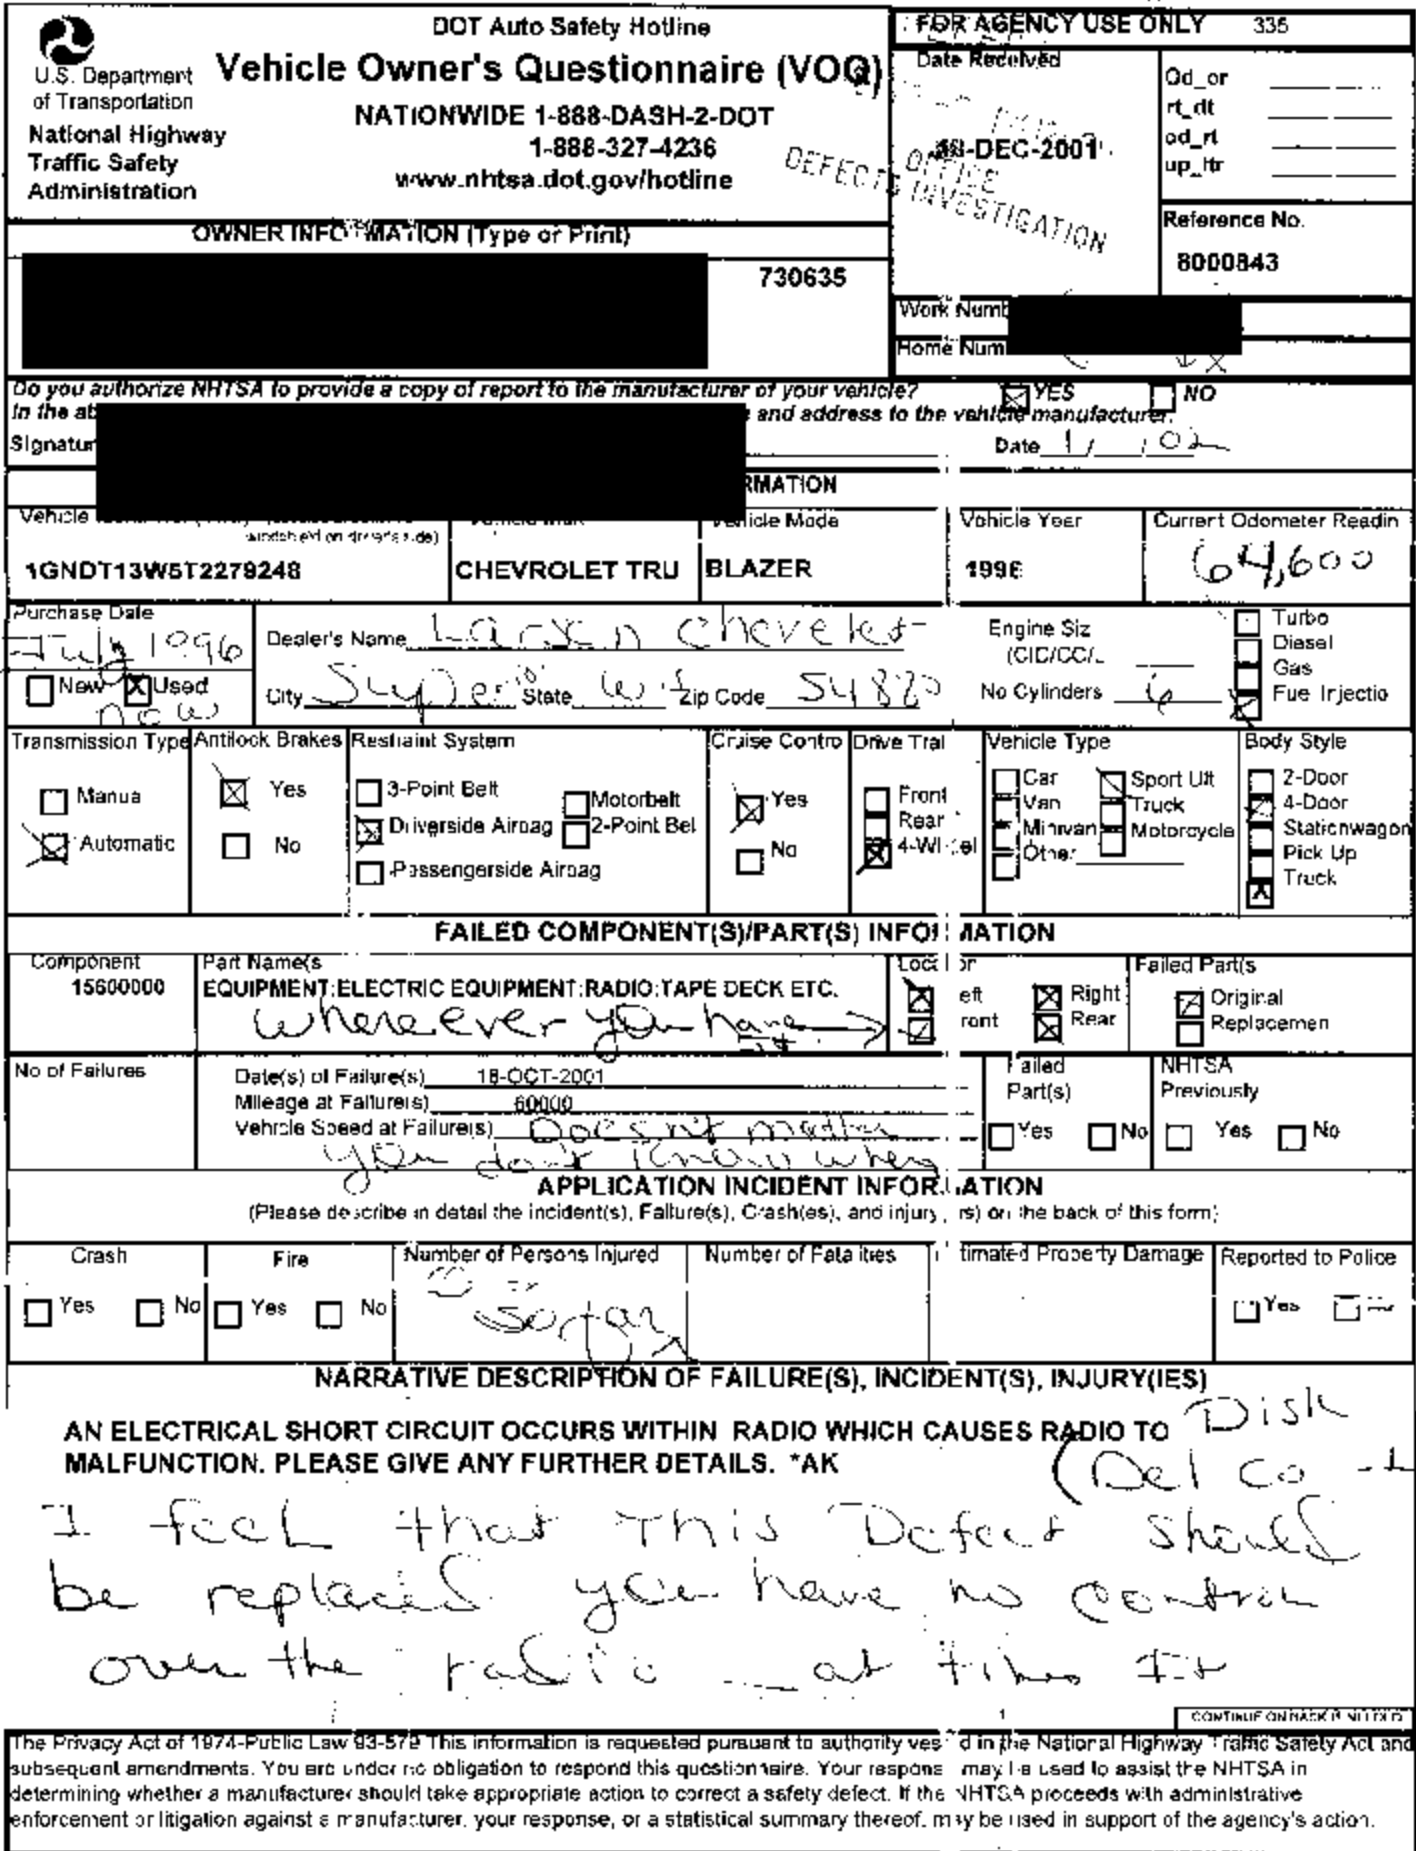 DOT Auto Safety Hotline
Vehicle Owner's Questionnaire (VOQ)
NATIONWIDE 1-888-DASH-2-DOT
1-888-327-4236
www.nhtsa.dot.gov/hotline
U.S. Department
of Transportation
National Highway
Traffic Safety
Administration
FOR AGENCY USE ONLY 335
Date Received
-DEC-2001
OFFICE
DEFECTS INVESTIGATION
Od_or
rt_dt
od_rt
up_ltr
Reference No.
8000843
OWNER INFO MATION (Type or Print)
730635
Work Numb
Home Num
Do you authorize NHTSA to provide a copy of report to the manufacturer of your vehicle? YES NO
In the ab and address to the vehicle manufacturer.
Signatur Date 1/ /02
RMATION
Vehicle
windshield on driver's side)
1GNDT13W5T2279248
CHEVROLET TRU
Vehicle Mode
BLAZER
Vehicle Year
1996
Current Odometer Readin
64,600
Purchase Date
July 1996
New Used
now
Dealer's Name Chevelet
City State Wi Zip Code 54880
Engine Siz
(CID/CC/L
No Cylinders 6
Turbo
Diesel
Gas
Fuel Injectio
Transmission Type
Manua
Automatic
Antilock Brakes
Yes
No
Restraint System
3-Point Belt
Driverside Airbag
Passengerside Airbag
Motorbelt
2-Point Bel
Cruise Contro
Yes
No
Drive Trai
Front
Rear
4-Wheel
Vehicle Type
Car
Van
Minivan
Other
Sport Utt
Truck
Motorcycle
Body Style
2-Door
4-Door
Stationwagon
Pick Up
Truck
FAILED COMPONENT(S)/PART(S) INFORMATION
Component
15600000
Part Name(s
EQUIPMENT:ELECTRIC EQUIPMENT:RADIO:TAPE DECK ETC.
Where ever you have it
Location
eft Right
ront Rear
Failed Part(s
Original
Replacemen
No of Failures
Date(s) of Failure(s) 18-OCT-2001
Mileage at Failure(s) 60000
Vehicle Speed at Failure(s) Doesn't matter
you don't know when
Failed
Part(s)
Yes No
NHTSA
Previously
Yes No
APPLICATION INCIDENT INFORMATION
(Please describe in detail the incident(s), Failure(s), Crash(es), and injury rs) on the back of this form)
Crash
Yes No
Fire
Yes No
Number of Persons Injured
so far
Number of Fatalities
timated Property Damage
Reported to Police
Yes
NARRATIVE DESCRIPTION OF FAILURE(S), INCIDENT(S), INJURY(IES)
AN ELECTRICAL SHORT CIRCUIT OCCURS WITHIN RADIO WHICH CAUSES RADIO TO
MALFUNCTION. PLEASE GIVE ANY FURTHER DETAILS. *AK
Disk
(Delco
I feel that This Defect should
be replaced you have no control
over the radio - at times It
CONTINUE ON BACK IF NEEDED
The Privacy Act of 1974-Public Law 93-579 This information is requested pursuant to authority ves d in the National Highway Traffic Safety Act and
subsequent amendments. You are under no obligation to respond this questionnaire. Your respons may be used to assist the NHTSA in
determining whether a manufacturer should take appropriate action to correct a safety defect. If the NHTSA proceeds with administrative
enforcement or litigation against a manufacturer, your response, or a statistical summary thereof, may be used in support of the agency's action.